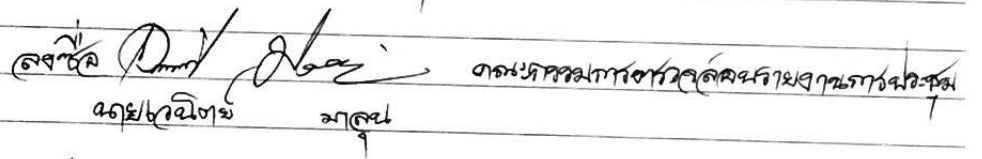 ลงชื่อ คณะกรรมการตรวจสอบรายงานการประชุม
นายเวนิตย์ มาลุน